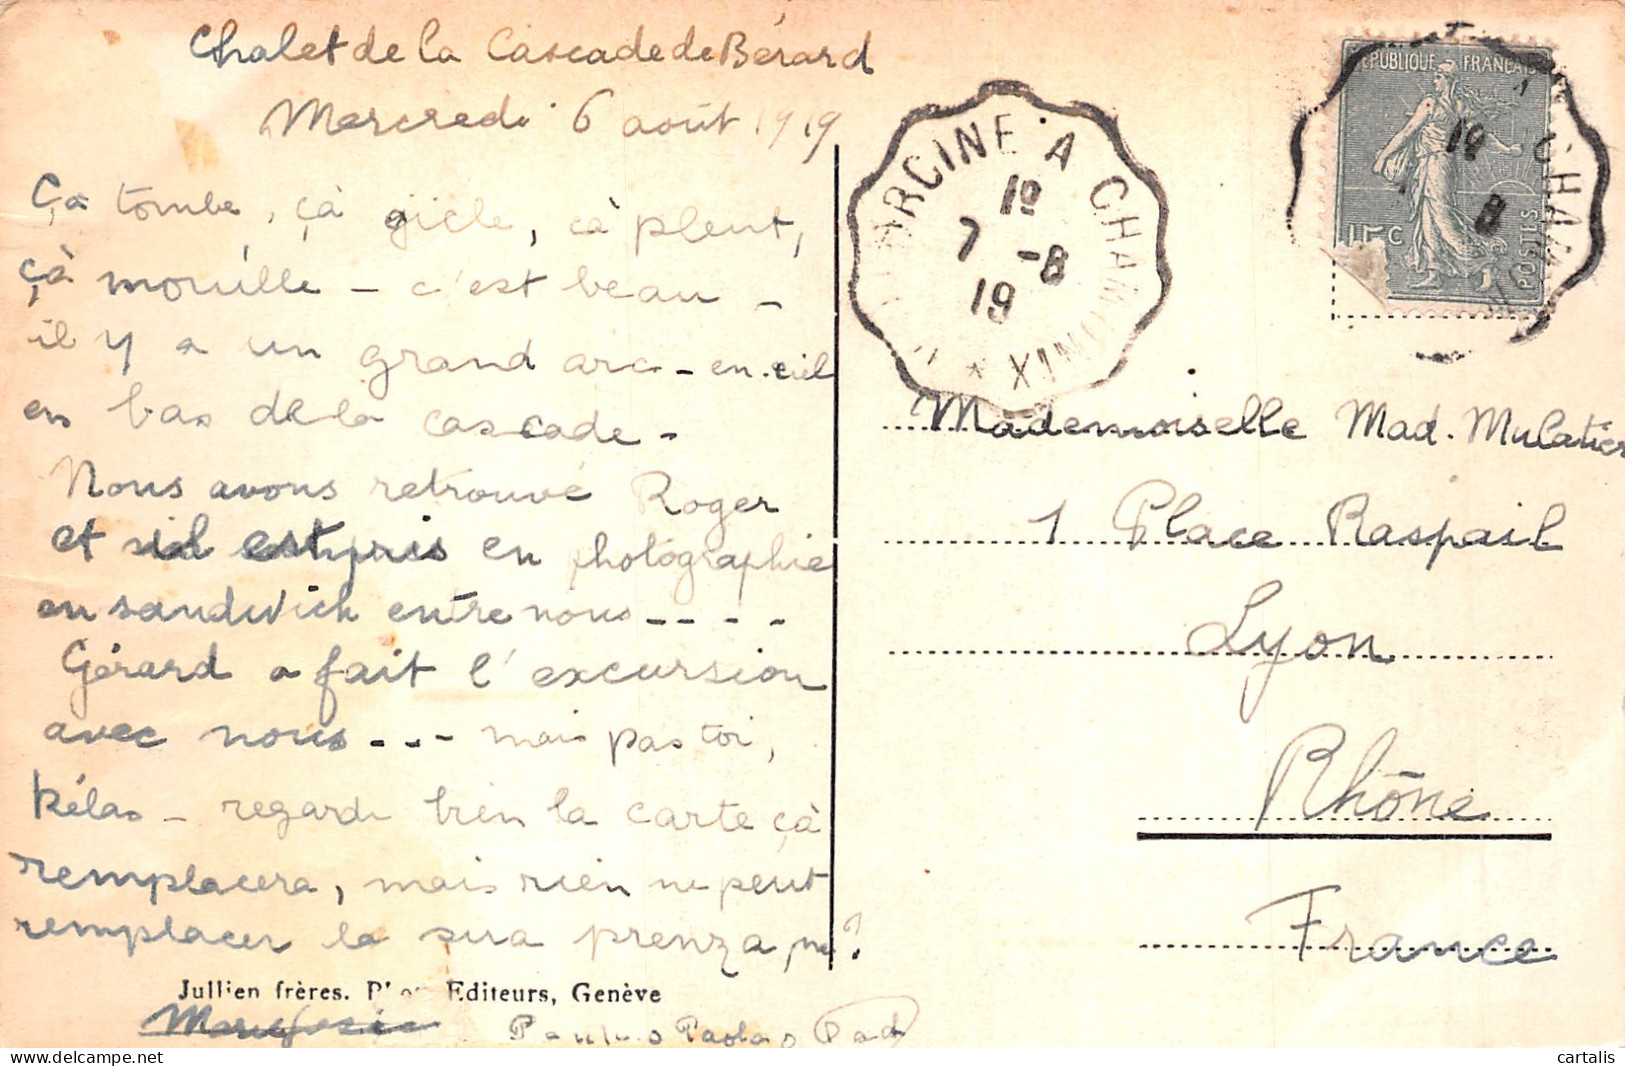 Chalet de la Cascade de Bérard
Mercredi 6 août 1919
Ça tombe, çà gicle, çà pleut,
çà mouille - c'est beau -
il y a un grand arc-en-ciel
en bas de la cascade -
Nous avons retrouvé Roger
et il est pris en photographie
en sandwich entre nous - - - -
Gérard a fait l'excursion
avec nous - - - mais pas toi,
hélas - regarde bien la carte çà
remplacera, mais rien ne peut
remplacer la prenza, ?
Jullien frères. Editeurs, Genève
Paolo
RCINE A CHAMONIX *
7 -8
19
REPUBLIQUE FRANÇAISE
15 c
POSTES
8
CHAM
Mademoiselle Mad. Mulatier
1 Place Raspail
Lyon
Rhône
France
cartalis